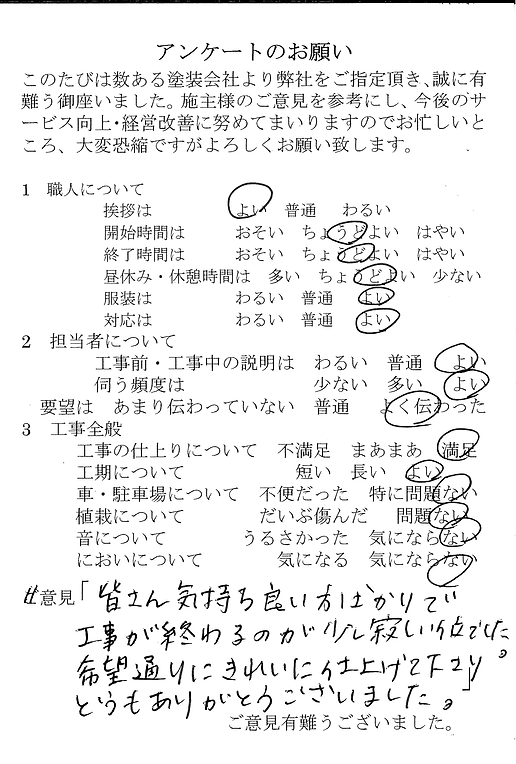 アンケートのお願い
このたびは数ある塗装会社より弊社をご指定頂き、誠に有
難う御座いました。施主様のご意見を参考にし、今後のサ
ービス向上・経営改善に努めてまいりますのでお忙しいと
ころ、大変恐縮ですがよろしくお願い致します。
1 職人について
挨拶は よい 普通 わるい
開始時間は おそい ちょうどよい はやい
終了時間は おそい ちょうどよい はやい
昼休み・休憩時間は 多い ちょうどよい 少ない
服装は わるい 普通 よい
対応は わるい 普通 よい
2 担当者について
工事前・工事中の説明は わるい 普通 よい
伺う頻度は 少ない 多い よい
要望は あまり伝わっていない 普通 よく伝わった
3 工事全般
工事の仕上りについて 不満足 まあまあ 満足
工期について 短い 長い よい
車・駐車場について 不便だった 特に問題ない
植栽について だいぶ傷んだ 問題ない
音について うるさかった 気にならない
においについて 気になる 気にならない
ご意見「皆さん気持ち良い方ばかりで
工事が終わるのが少し寂しい位でした。
希望通りにきれいに仕上げて下さり
どうもありがとうございました。」
ご意見有難うございました。